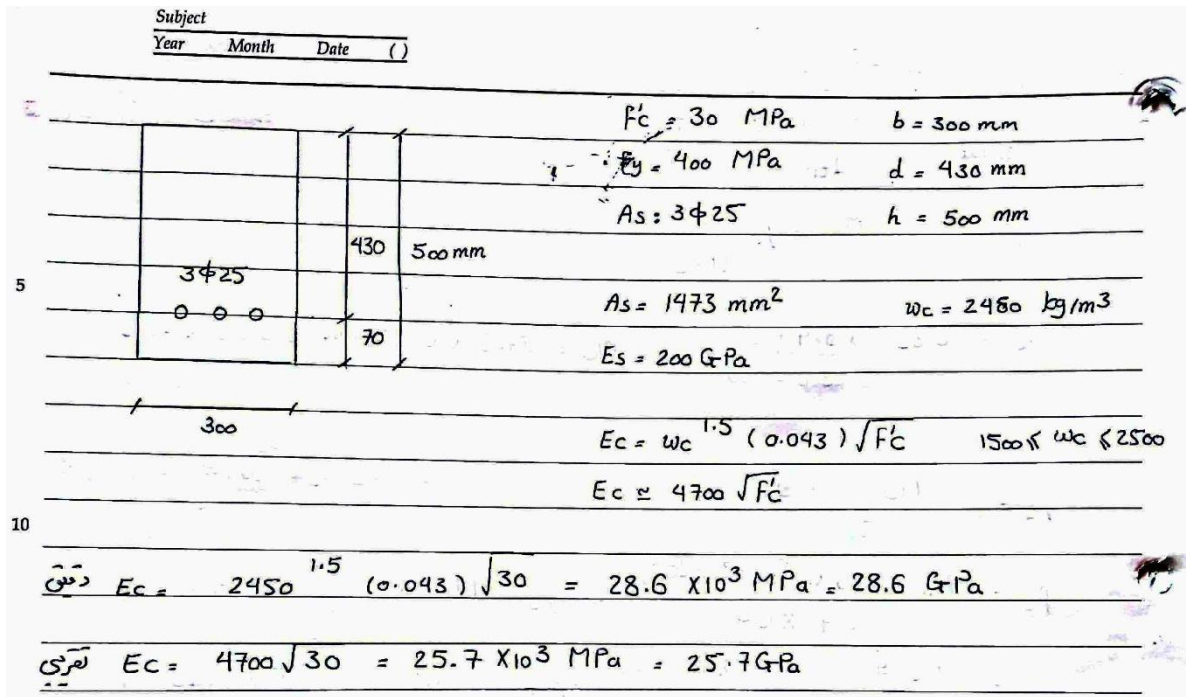 Subject
Year Month Date ( )
F'c = 30 MPa b = 300 mm
Fy = 400 MPa d = 430 mm
As : 3Φ25 h = 500 mm
430 500 mm
3Φ25
5
As = 1473 mm² wc = 2450 kg/m3
70
Es = 200 GPa
300
Ec = wc^1.5 (0.043) √F'c 1500 ≤ wc ≤ 2500
Ec ≃ 4700 √F'c
10
دقیق Ec = 2450^1.5 (0.043) √30 = 28.6 X10³ MPa = 28.6 GPa
تقریبی Ec = 4700 √30 = 25.7 X10³ MPa = 25.7 GPa